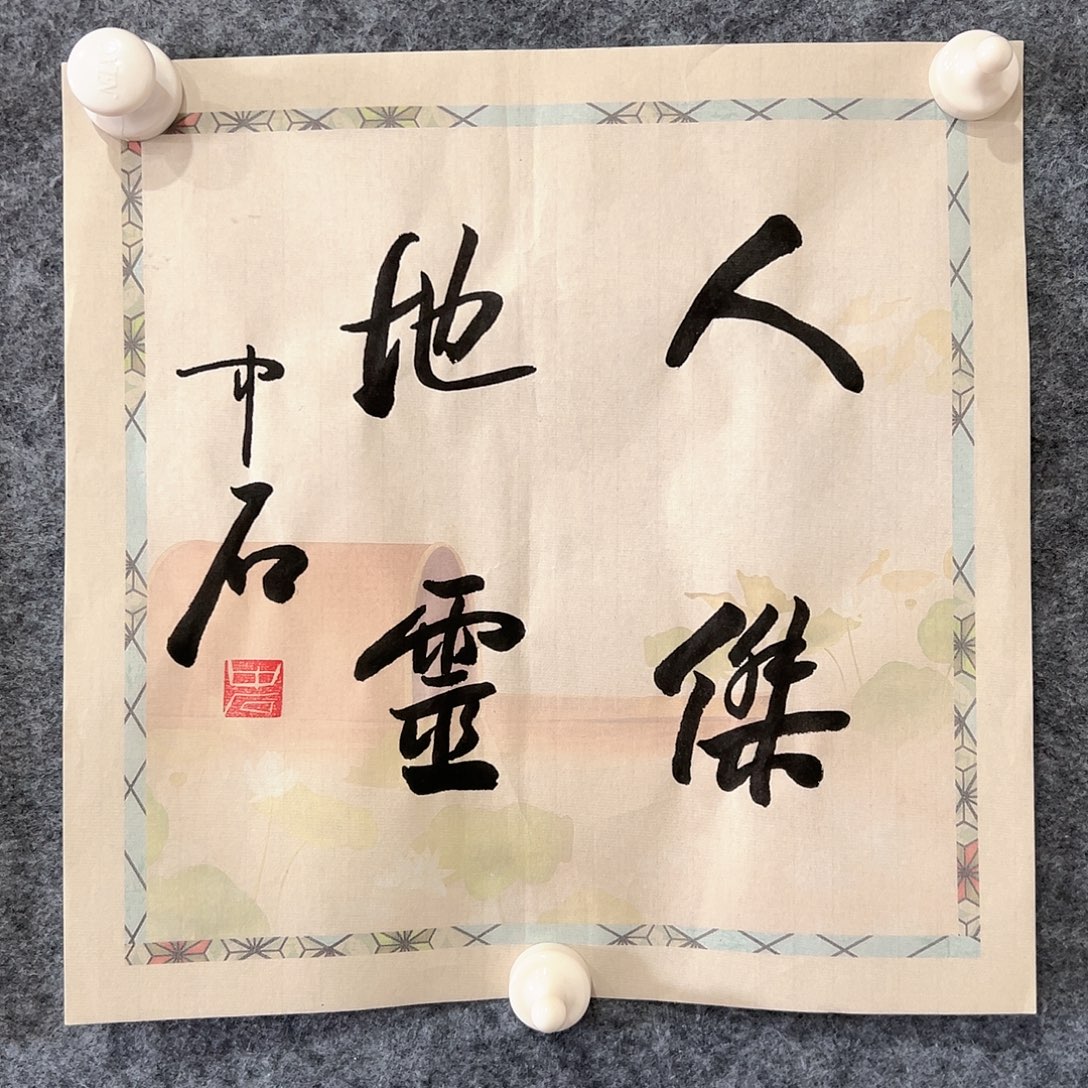 人傑
地靈
中石